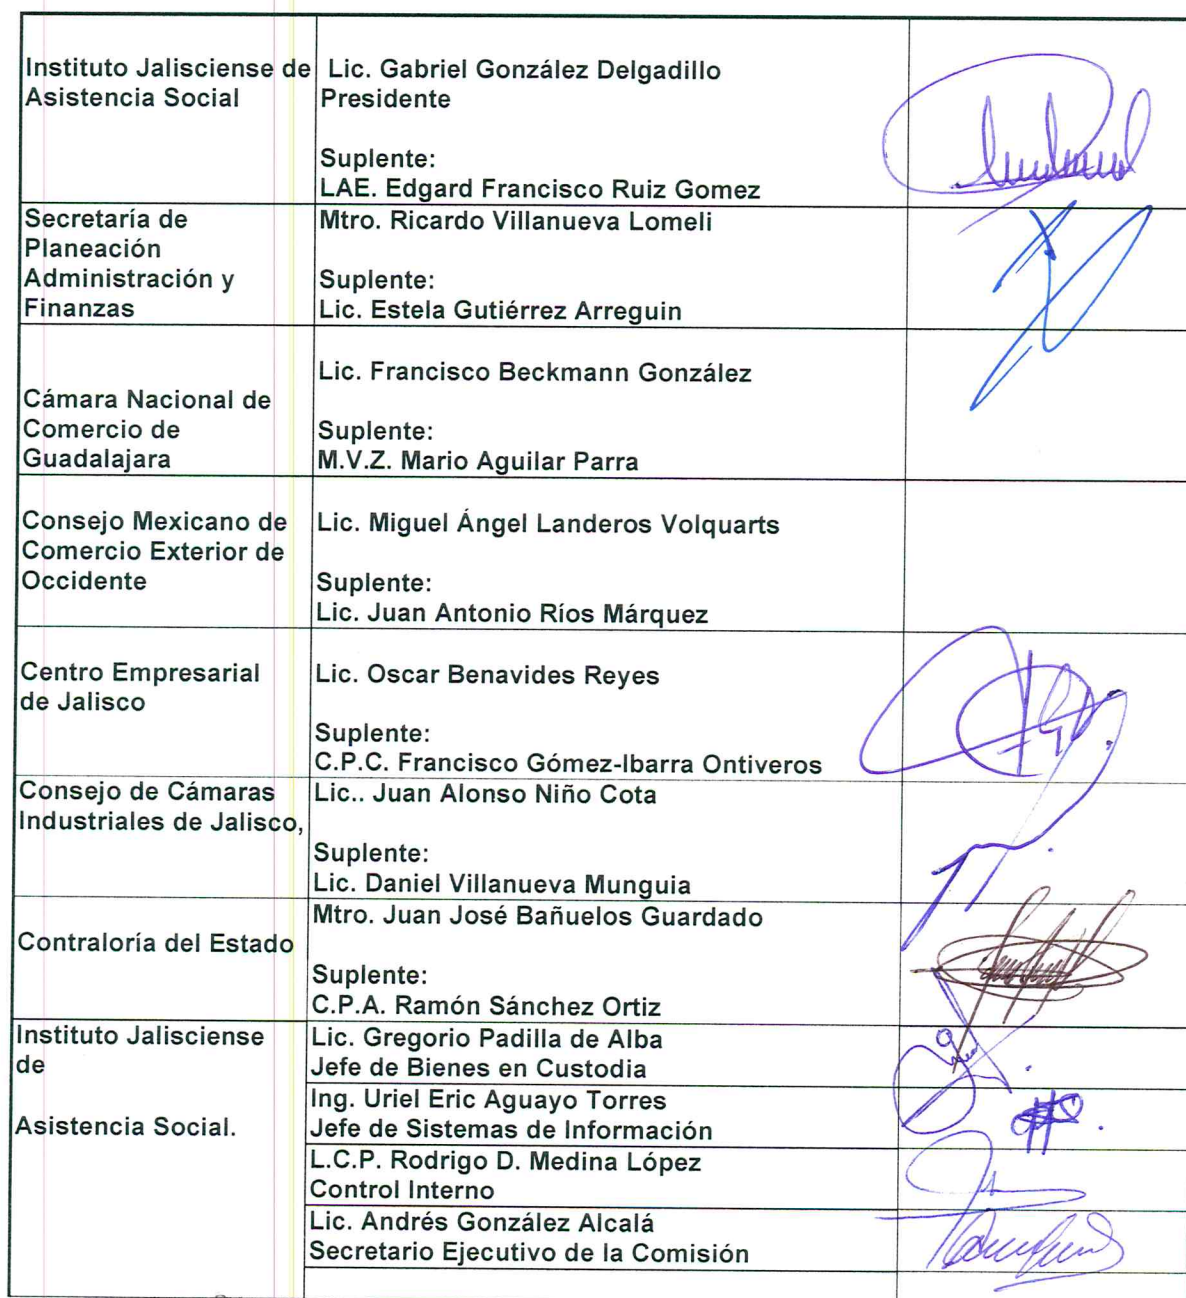 Instituto Jalisciense de
Asistencia Social
Lic. Gabriel González Delgadillo
Presidente
Suplente:
LAE. Edgard Francisco Ruiz Gomez
Secretaría de
Planeación
Administración y
Finanzas
Mtro. Ricardo Villanueva Lomeli
Suplente:
Lic. Estela Gutiérrez Arreguin
Cámara Nacional de
Comercio de
Guadalajara
Lic. Francisco Beckmann González
Suplente:
M.V.Z. Mario Aguilar Parra
Consejo Mexicano de
Comercio Exterior de
Occidente
Lic. Miguel Ángel Landeros Volquarts
Suplente:
Lic. Juan Antonio Ríos Márquez
Centro Empresarial
de Jalisco
Lic. Oscar Benavides Reyes
Suplente:
C.P.C. Francisco Gómez-Ibarra Ontiveros
Consejo de Cámaras
Industriales de Jalisco,
Lic.. Juan Alonso Niño Cota
Suplente:
Lic. Daniel Villanueva Munguia
Contraloría del Estado
Mtro. Juan José Bañuelos Guardado
Suplente:
C.P.A. Ramón Sánchez Ortiz
Instituto Jalisciense
de
Asistencia Social.
Lic. Gregorio Padilla de Alba
Jefe de Bienes en Custodia
Ing. Uriel Eric Aguayo Torres
Jefe de Sistemas de Información
L.C.P. Rodrigo D. Medina López
Control Interno
Lic. Andrés González Alcalá
Secretario Ejecutivo de la Comisión